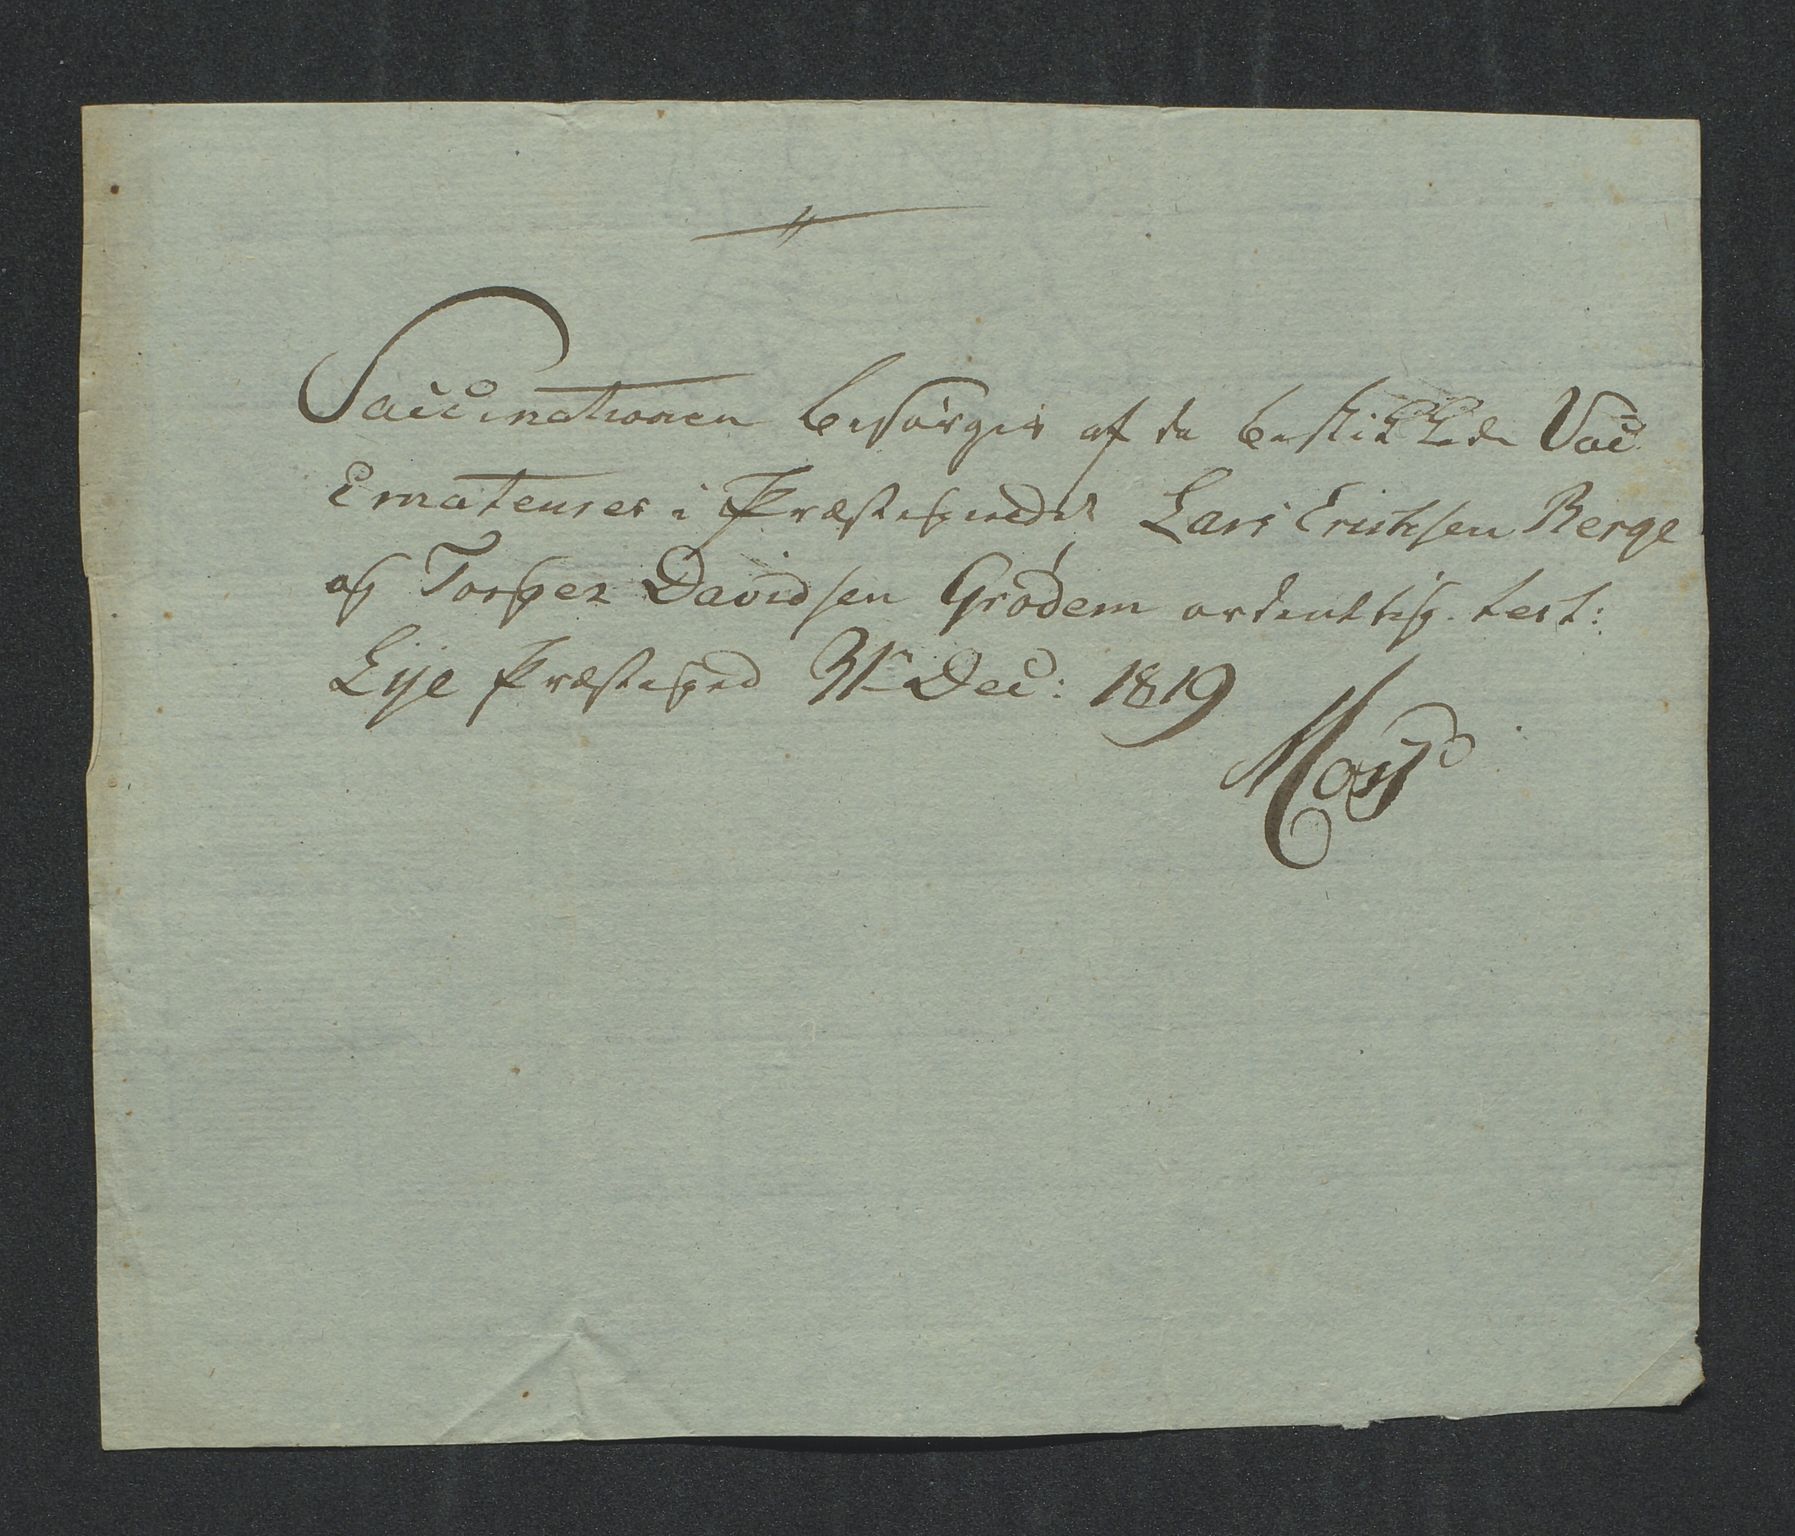 Vaccinationen besørges af de beskikkede Vac
cinateurer i Præstegieldet Lars Erichsen Berge
og Torger Davidsen Grødem ordentlig. test:
Lye Præstegield 31te Dec: 1819